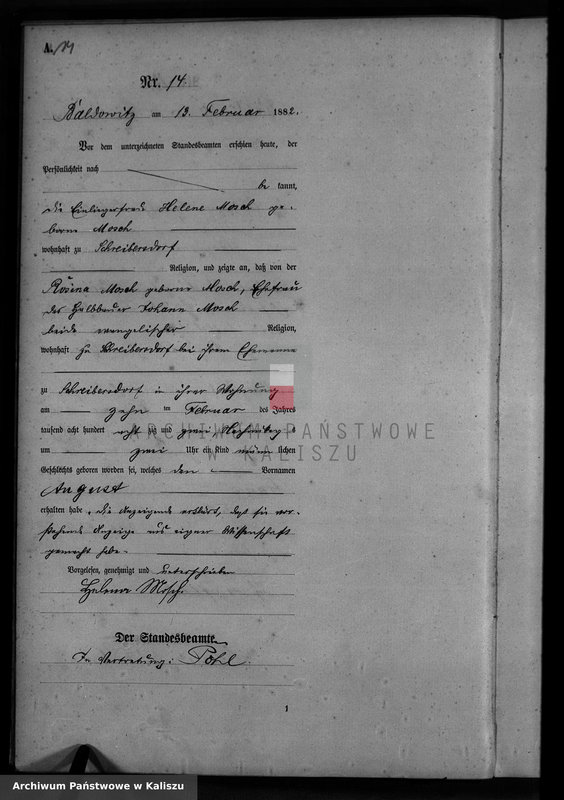 A./14
Nr. 14.
Baldowitz am 13. Februar 1882.
Vor dem unterzeichneten Standesbeamten erschien heute, der
Persönlichkeit nach
be kannt,
die Einliegerfrau Helene Mosch ge-
borne Mosch
wohnhaft zu Schreibersdorf
Religion, und zeigte an, daß von der
Rosina Mosch geborne Mosch, Ehefrau
des Halbbauer Johann Mosch
beide evangelischer Religion,
wohnhaft zu Schreibersdorf bei ihrem Ehemanne
zu Schreibersdorf in ihrer Wohnung
am zehn ten Februar des Jahres
tausend acht hundert acht zig und zwei Nachmittags
um zwei Uhr ein Kind männ lichen
Geschlechts geboren worden sei, welches den Vornamen
August
erhalten habe, die Anzeigende erklärt, daß sie vor-
stehende Anzeige aus eigner Wissenschaft
gemacht habe.
Vorgelesen, genehmigt und unterschrieben
Helena Mosch.
Der Standesbeamte
In Vertretung: Pohl.
1
ARCHIWUM PAŃSTWOWE
W KALISZU
Archiwum Państwowe w Kaliszu